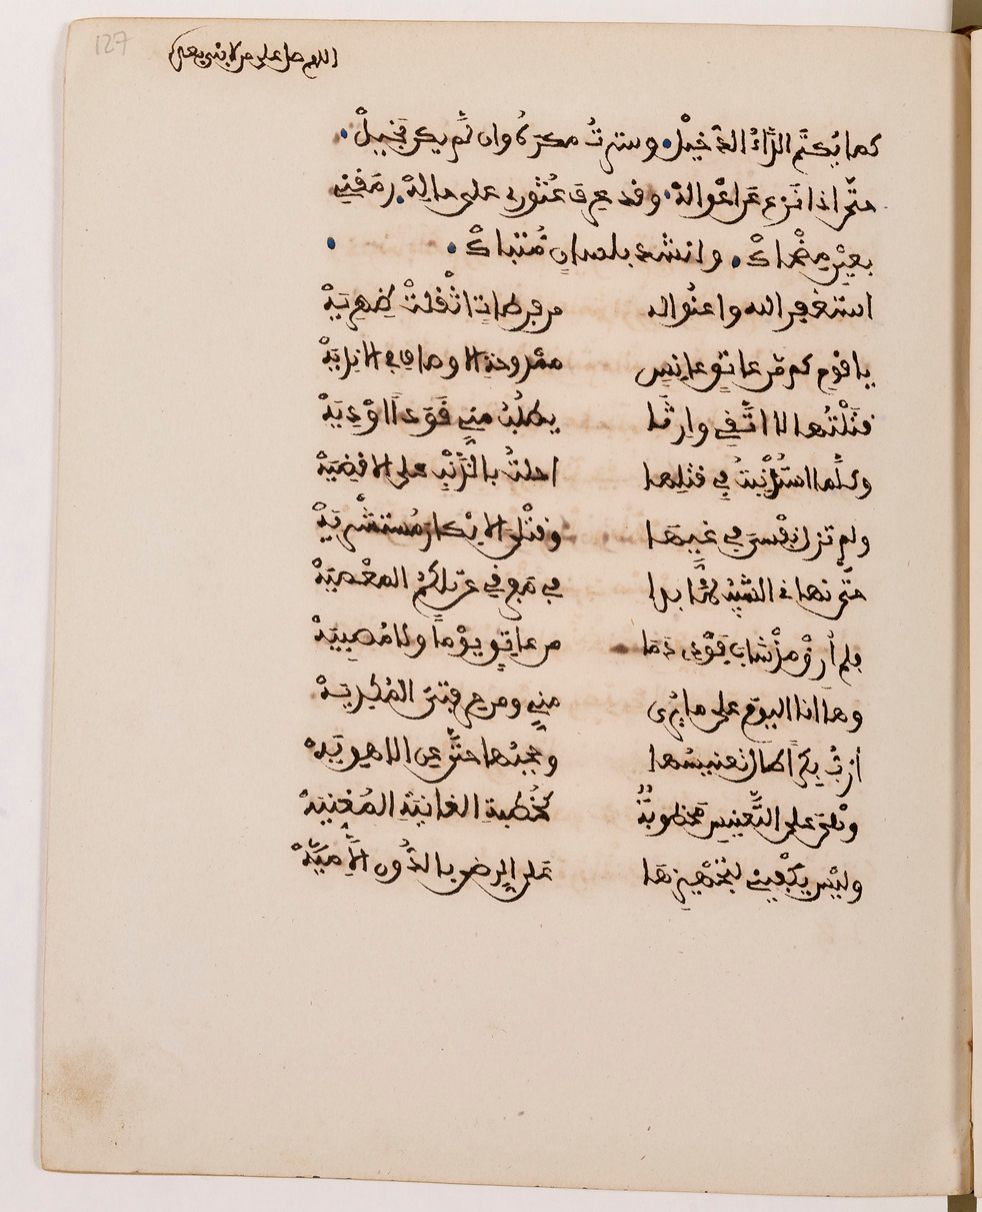 127
اللهم صل على من لا نبي بعده
كما يُكتَم الدَّاءُ الدَّخيلْ. وسترتُ مكرَهُ وان لم يكن يخيلْ.
حتَّى اذا نزع عَن اغْوالهْ. وقد عرف عُثُوري على حالهْ. رمَقني
بعيْن مِضْحاكْ. وانشد بلسانٍ مُتباكْ.
استغفر الله واعنُوا له من فرطاتٍ اثْقلتْ ظهريَهْ
يا قوم كم من عاتقٍ عانسٍ ممْدوحةِ الاوصافِ في الانديَهْ
قتَلْتُها لا اتَّقي وارثًا يطلُبُ مني قَوَدًا اوْ ديَهْ
وكلَّما استُذْنِبْتُ في قتلِها احلتُ بالذَّنْبِ على الاقضيَهْ
ولم تزل نفْسيَ في غيها وقتْلِ الابْكار مُستشْريَهْ
حتَّى نهاني الشيْبُ لمَّا بدا في مَفرقي عن تلكُمُ المعْصيَهْ
فلم أُرقْ مذْ شاب فَوْدي دَمًا من عاتقٍ يوْمًا ولا مُصبيَهْ
وها انا اليوْمَ على ما يُرى مني ومن حرفتيَ المُكديَهْ
أرُبُّ بكرًا طال تعنيسُها وحجبُها حتَّى عن الاهويَهْ
وهْيَ على التَّعنيس مخطوبةٌ كخُطبةِ الغانيَةِ المُغنيَهْ
وليْس يكْفيني لتجْهيزها على الرضى بالدُّون الَّا ميَّهْ